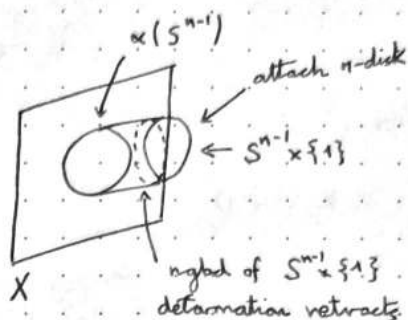 α(S^{n-1})
attach n-disk
S^{n-1} × {1}
X
ngbd of S^{n-1} × {1}
deformation retracts